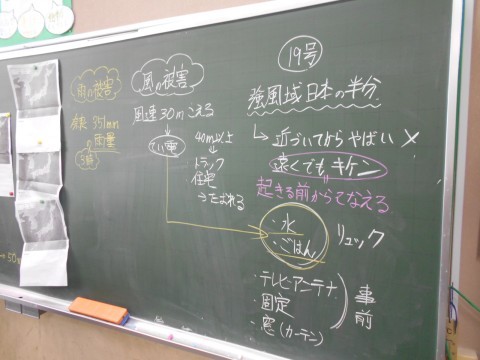 雨の被害
351mm
雨量
風の被害
風速30mこえる
てい電
40m以上
↓
トラック
住宅
→たおれる
19号
強風域 日本の半分
↳近づいてからやばい ×
遠くでもキケン
起きる前からそなえる
・水
・ごはん
リュック
・テレビ・アンテナ
・固定
・窓(カーテン)
事前